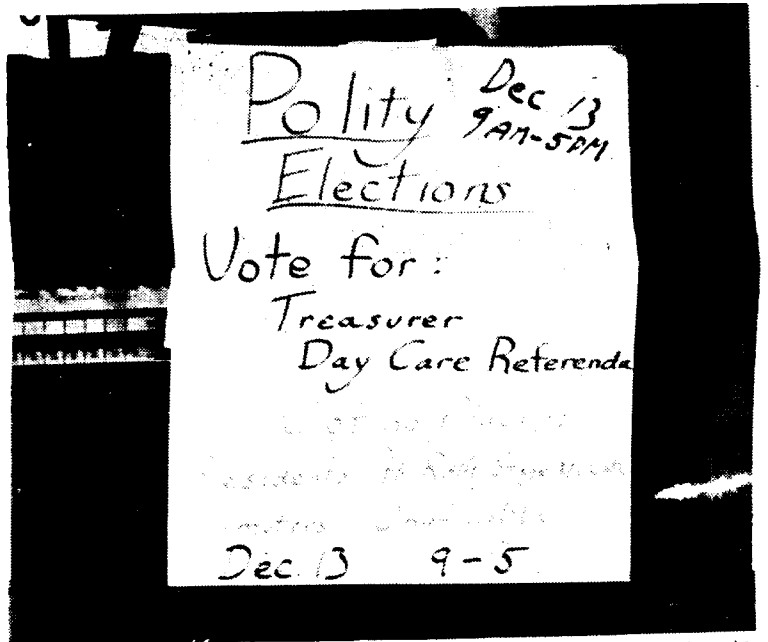 Polity
Dec 13
9AM-5PM
Elections
Vote for:
Treasurer
Day Care Referenda
Residents
Dec 13 9-5